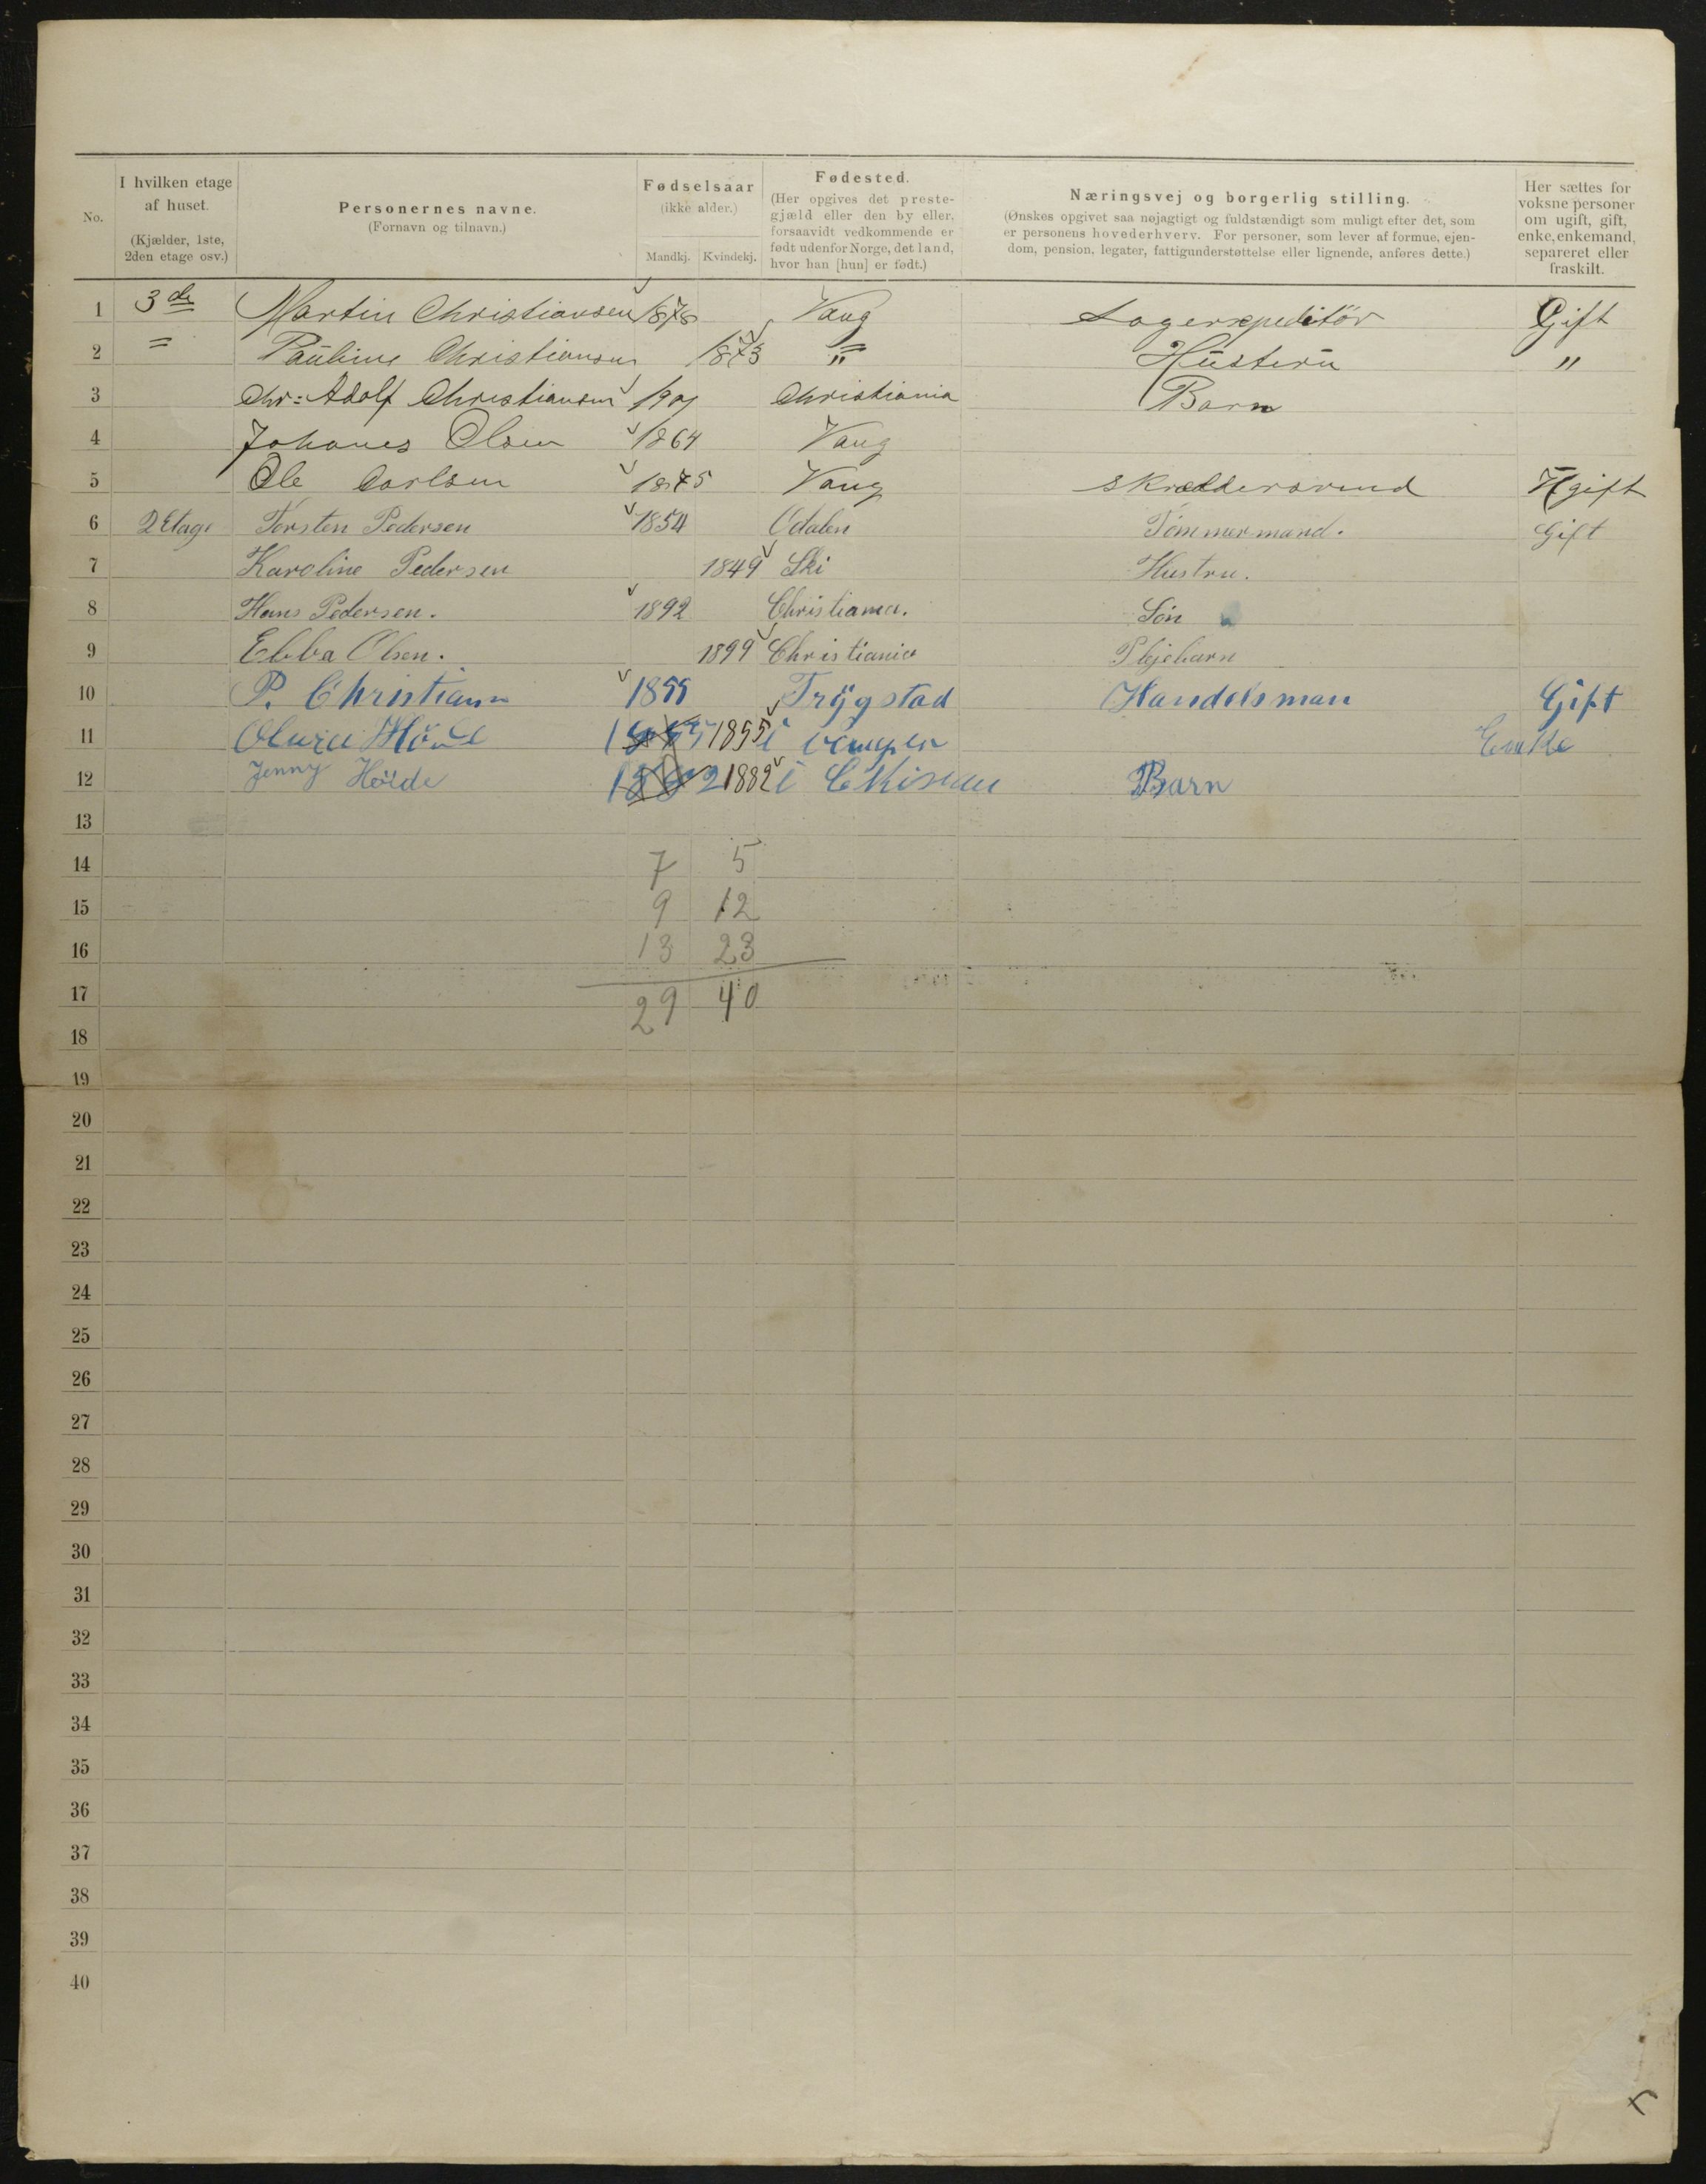 No. I hvilken etage af huset. (Kjælder, 1ste, 2den etage osv.) Personernes navne. (Fornavn og tilnavn.) Fødselsaar (ikke alder.) Mandkj. Kvindekj. Fødested. (Her opgives det prestegjæld eller den by eller, forsaavidt vedkommende er født udenfor Norge, det land, hvor han [hun] er født.) Næringsvej og borgerlig stilling. (Ønskes opgivet saa nøjagtigt og fuldstændigt som muligt efter det, som er personens hovederhverv. For personer, som lever af formue, ejendom, pension, legater, fattigunderstøttelse eller lignende, anføres dette.) Her sættes for voksne personer om ugift, gift, enke, enkemand, separeret eller fraskilt.
1 3de Martin Christiansen 1878 Vang Lagerxpeditör Gift
2 = Pauline Christiansen 1873 " Hustern "
3 Chr: Adolf Christiansen 1901 Christiania Barn
4 Johanes Olsen 1864 Vang
5 Ole Carlsen 1875 Vang Skræddersvend Ugift
6 2 Etage Torsten Pedersen 1854 Odalen Tömmermand. Gift
7 Karoline Pedersen 1849 Ski Hustru.
8 Hans Pedersen. 1892 Christiania. Sön
9 Ebba Olsen. 1899 Christiania Plejebarn
10 P. Christiansn 1855 Trygstad Handelsman Gift
11 1855 i Enke
12 Jenny Höide 1882 i Barn
13
14 7 5
15 9 12
16 13 23
17 29 40
18
19
20
21
22
23
24
25
26
27
28
29
30
31
32
33
34
35
36
37
38
39
40